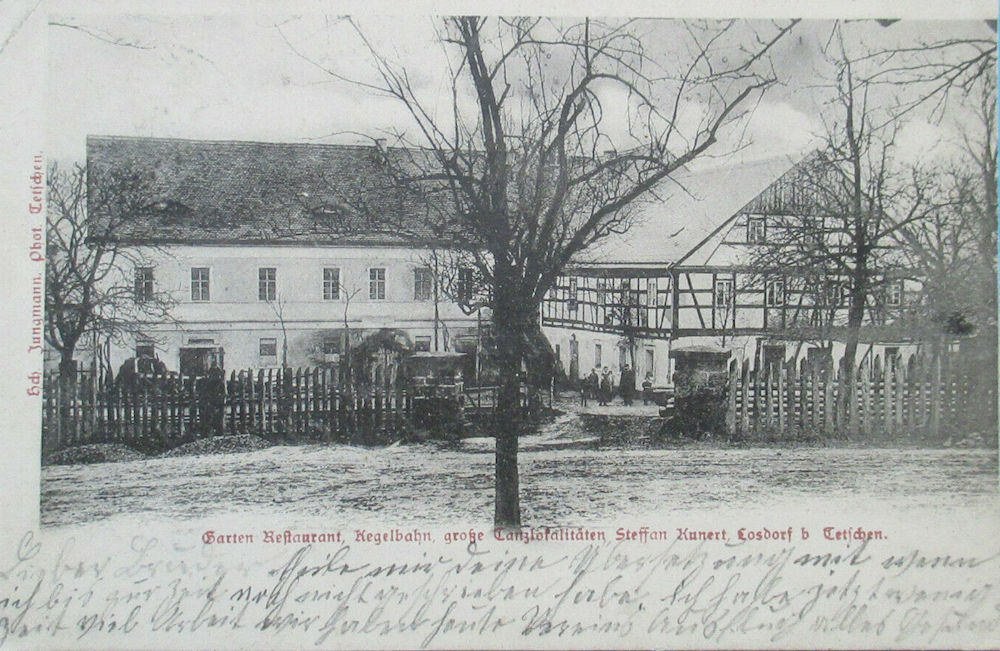 Hch. Jungmann. Phot. Tetschen.
Garten Restaurant, Kegelbahn, große Tanzlokalitäten Steffan Kunert, Losdorf b Tetschen.
Lieber Bruder Theile mir deine Übersetzung mit wenn
ich bis zur Zeit noch nicht geschrieben habe. Ich habe jetzt wenig
Zeit viel Arbeit wir haben heute Vereins Ausflug alles Gesund